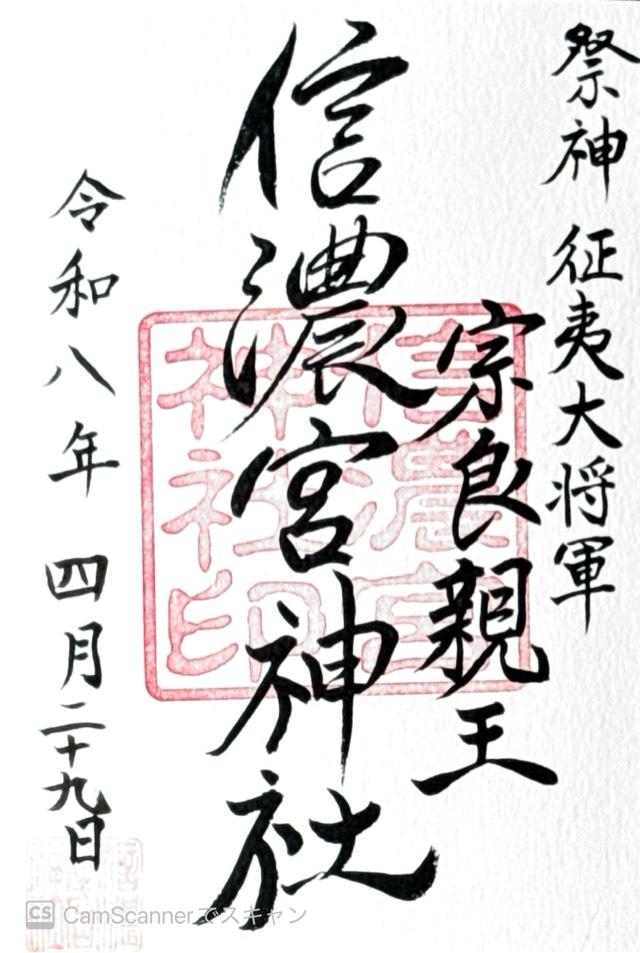 祭神 征夷大将軍
宗良親王
信濃宮神社
信濃宮
神社印
令和八年 四月二十九日
CS CamScannerでスキャン